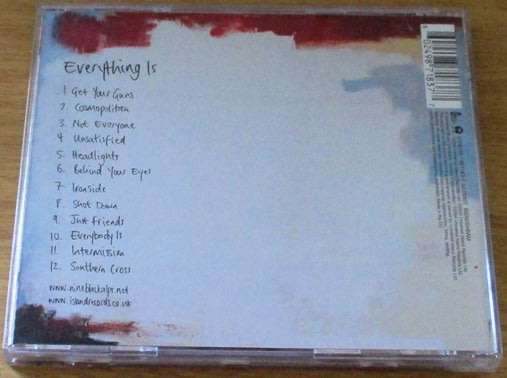 Everything Is
1 Get Your Guns
2. Cosmopolitan
3. Not Everyone
4 Unsatisfied
5. Headlights
6. Behind Your Eyes
7. Ironside
8. Shot Down
9. Just Friends
10. Everybody Is
11. Intermission
12. Southern Cross
www.nineblackalps.net
www.islandrecords.co.uk